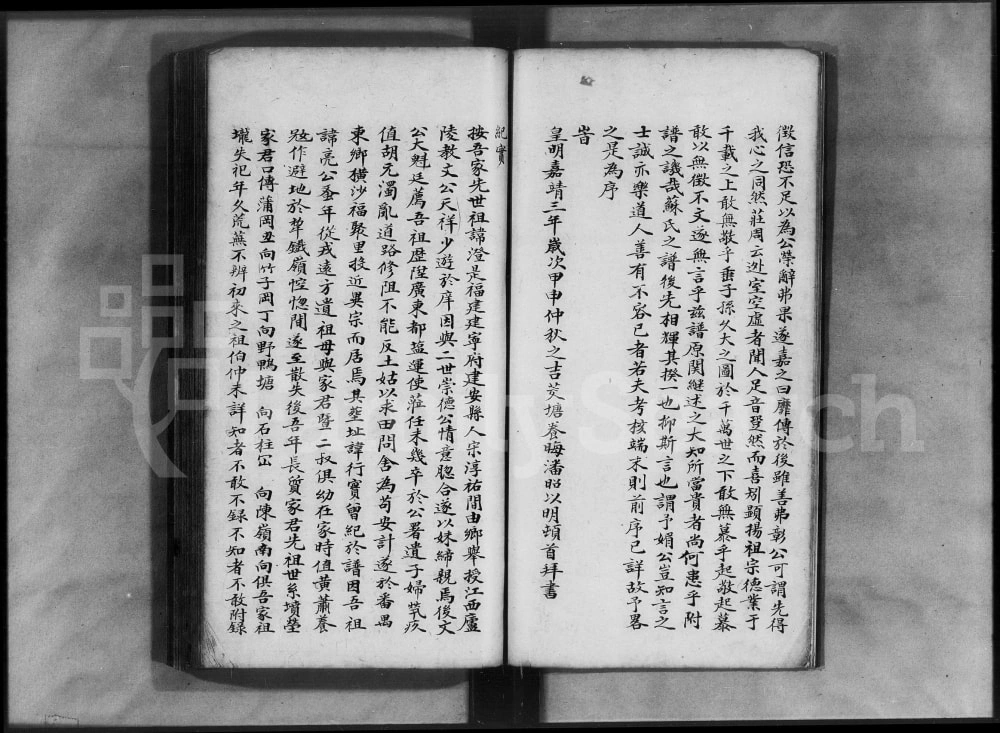 徵信恐不足以為公榮辭弗果遂嘉之曰靡傳於後雖善弗彰公可謂先得
我心之同然莊周云逃空虛者聞人足音跫然而喜矧顯揚祖宗德業于
千載之上敢無敬乎垂子孫久大之圖於千萬世之下敢無慕乎起敬起慕
敢以無徵不文遂無言乎茲譜原関継述之大知所當貴者尚何患乎附
譜之譏哉蘇氏之譜後先相輝其揆一也抑斯言也謂予媚公豈知言之
士誠亦樂道人善有不容已者若夫考核端末則前序已詳故予畧
之是為序
旹
皇明嘉靖三年歲次甲申仲秋之吉茭塘養晦潘昭以明頓首拜書
紀實
按吾家先世祖諱澄是福建建寧府建安縣人宋淳祐間由鄉舉授江西廬
陵教文公天祥少遊於庠因與二世崇德公情意脗合遂以妹締親焉後文
公大魁廷薦吾祖歷陞廣東都鹽運使蒞任未幾卒於公署遺子婦煢疚
值胡元濁亂道路修阻不能反土姑以求田問舍為苟安計遂於番禺
東鄉橫沙福聚里投近異宗而居焉其塟址諱行實曾紀於譜因吾祖
諱亮公蚤年從戎遠方遺祖母與家君暨二叔俱幼在家時值黃蕭養
冦作避地於犂鐵嶺悾惚間遂至散失後吾年長質家君先祖世系墳塋
家君口傳蒲岡丑向竹子岡丁向野鴨塘 向石柱冚 向陳嶺南向俱吾家祖
壠失祀年久荒蕪不辨初来之祖伯仲未詳知者不敢不録不知者不敢附録
FamilySearch